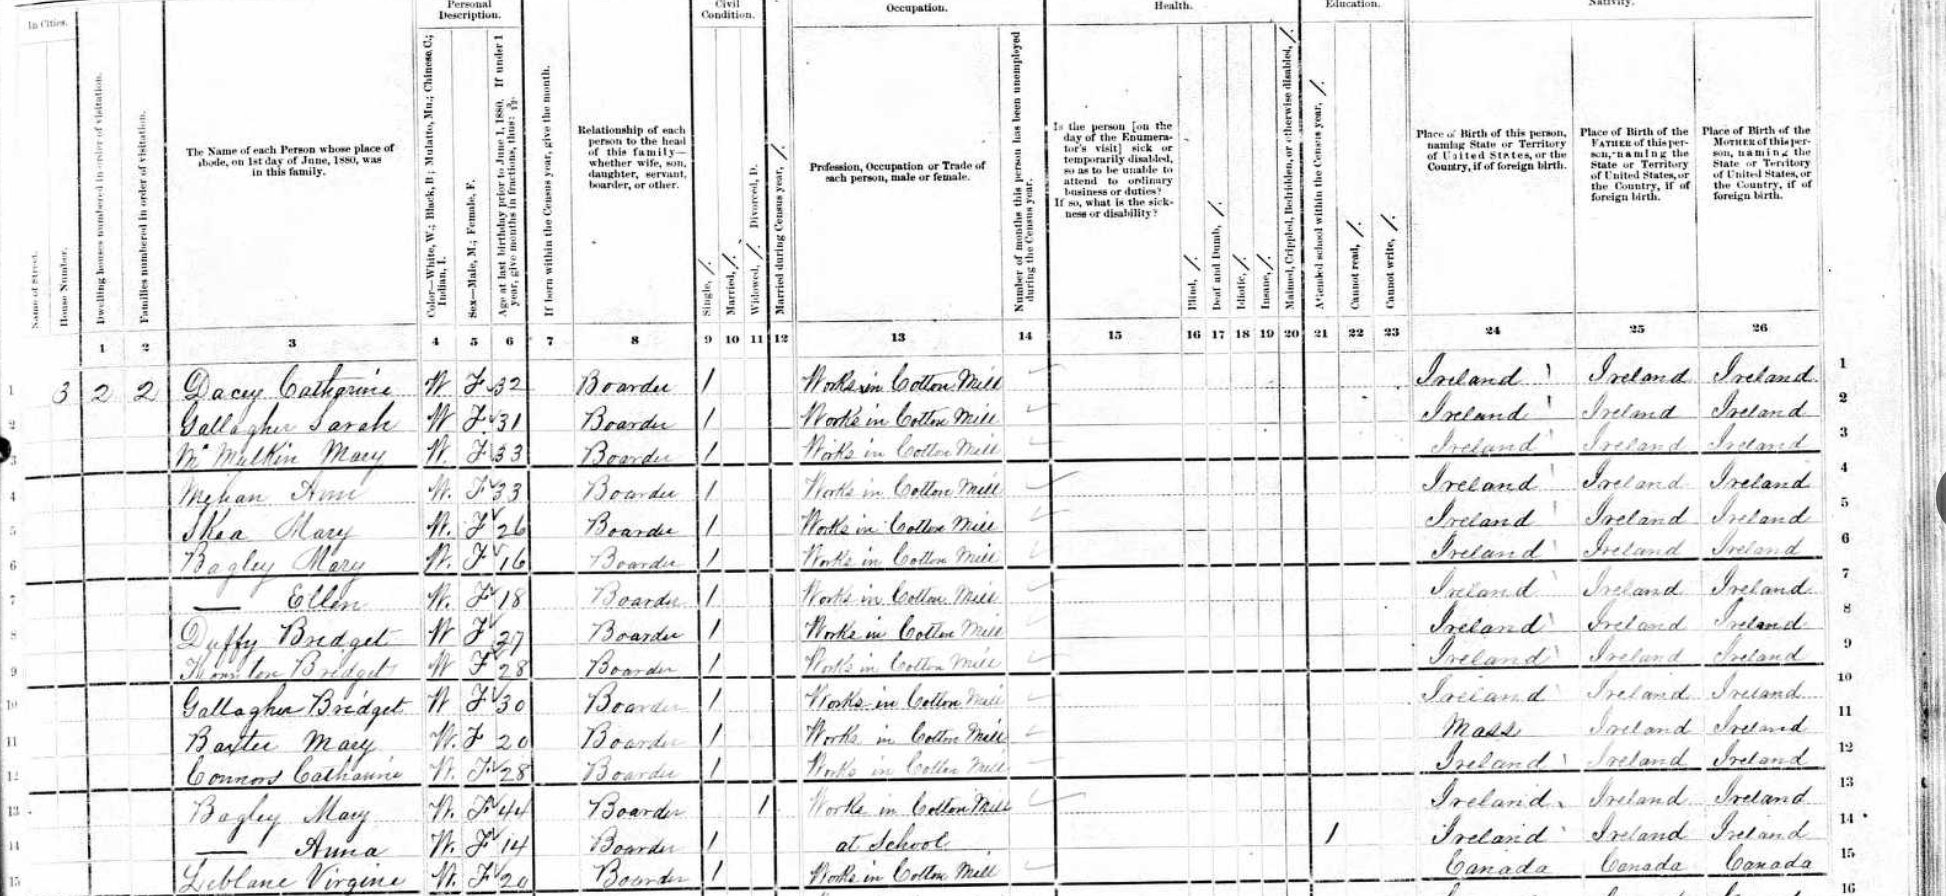 In Cities.
Name of Street.
House Number.
Dwelling houses numbered in order of visitation.
Families numbered in order of visitation.
The Name of each Person whose place of abode, on 1st day of June, 1880, was in this family.
Personal Description.
Color—White, W.; Black, B; Mulatto, Mu.; Chinese, C.; Indian, I.
Sex—Male, M.; Female, F.
Age at last birthday prior to June 1, 1880. If under 1 year, give months in fractions, thus: 3/12.
If born within the Census year, give the month.
Relationship of each person to the head of this family—whether wife, son, daughter, servant, boarder, or other.
Civil Condition.
Single, /.
Married, /.
Widowed, /. Divorced, D.
Married during Census year, /.
Occupation.
Profession, Occupation or Trade of each person, male or female.
Number of months this person has been unemployed during the Census year.
Health.
Is the person [on the day of the Enumerator's visit] sick or temporarily disabled, so as to be unable to attend to ordinary business or duties? If so, what is the sickness or disability?
Blind, /.
Deaf and Dumb, /.
Idiotic, /.
Insane, /.
Maimed, Crippled, Bedridden, or otherwise disabled, /.
Education.
Attended school within the Census year, /.
Cannot read, /.
Cannot write, /.
Nativity.
Place of Birth of this person, naming State or Territory of United States, or the Country, if of foreign birth.
Place of Birth of the FATHER of this person, naming the State or Territory of United States, or the Country, if of foreign birth.
Place of Birth of the MOTHER of this person, naming the State or Territory of United States, or the Country, if of foreign birth.
1 2 3 4 5 6 7 8 9 10 11 12 13 14 15 16 17 18 19 20 21 22 23 24 25 26
1 3 2 2 Dacey Catharine W. F 32 Boarder / Works in Cotton Mill Ireland Ireland Ireland 1
2 Gallagher Sarah W F 31 Boarder / Works in Cotton Mill Ireland Ireland Ireland 2
3 Mc Mulkin Mary W. F 33 Boarder / Works in Cotton Mill Ireland Ireland Ireland 3
4 Mehan Ann W. F 33 Boarder / Works in Cotton Mill Ireland Ireland Ireland 4
5 Mary W. F 26 Boarder / Works in Cotton Mill Ireland Ireland Ireland 5
6 Bagley Mary W. F 16 Boarder / Works in Cotton Mill Ireland Ireland Ireland 6
7 — Ellen W. F 18 Boarder / Works in Cotton Mill Ireland Ireland Ireland 7
8 Duffy Bridget W F 27 Boarder / Works in Cotton Mill Ireland Ireland Ireland 8
9 Thornton Bridget W F 28 Boarder / Works in Cotton Mill Ireland Ireland Ireland 9
10 Gallagher Bridget W F 30 Boarder / Works in Cotton Mill Ireland Ireland Ireland 10
11 Baxter Mary W. F 20 Boarder / Works in Cotton Mill Mass Ireland Ireland 11
12 Connors Catharine W. F. 28 Boarder / Works in Cotton Mill Ireland Ireland Ireland 12
13 Bagley Mary W. F 44 Boarder / Works in Cotton Mill Ireland Ireland Ireland 13
14 — Anna W. F 14 Boarder / at School / Ireland Ireland Ireland 14
15 Leblanc Virgine W. F 20 Boarder / Works in Cotton Mill Canada Canada Canada 15
16